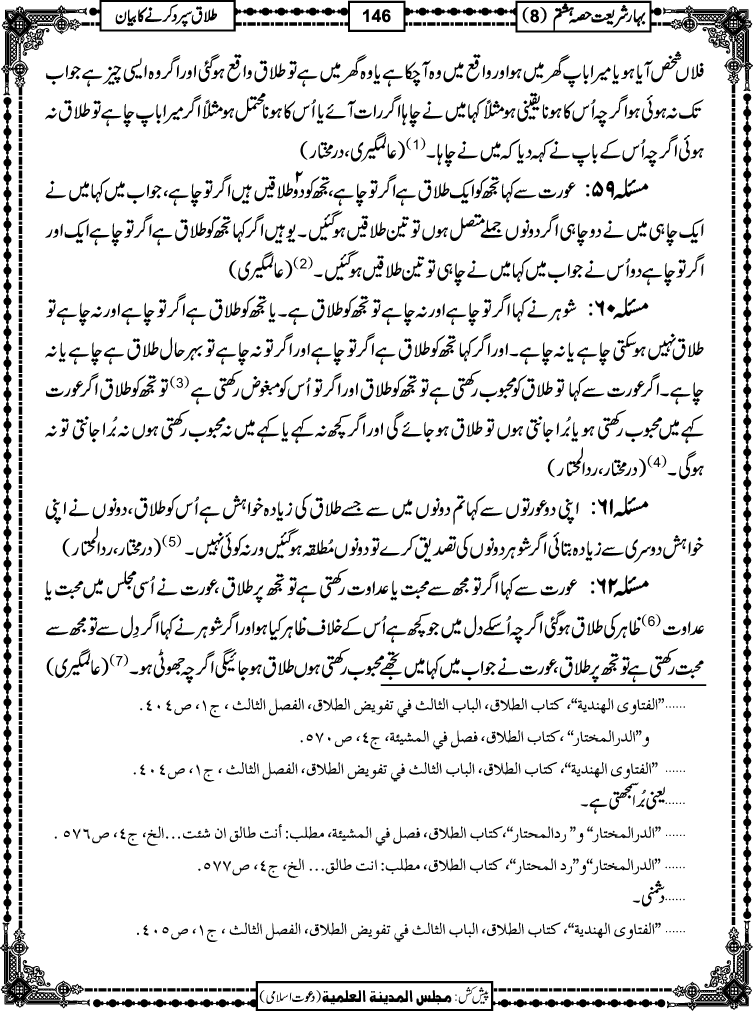 بہارِ شریعت حصہ ہشتم (8)
146
طلاق سپرد کرنے کا بیان
فلاں شخص آیا ہو یا میرا باپ گھر میں ہو اور واقع میں وہ آچکا ہے یا وہ گھر میں ہے تو طلاق واقع ہوگئی اور اگر وہ ایسی چیز ہے جو اب
تک نہ ہوئی ہو اگرچہ اُس کا ہونا یقینی ہو مثلاً کہا میں نے چاہا اگر رات آئے یا اُس کا ہونا محتمل ہو مثلاً اگر میرا باپ چاہے تو طلاق نہ
ہوئی اگرچہ اُس کے باپ نے کہہ دیا کہ میں نے چاہا۔(1) (عالمگیری، درمختار)
مسئلہ ۵۹: عورت سے کہا تجھ کو ایک طلاق ہے اگر تو چاہے، تجھ کو دو۲ طلاقیں ہیں اگر تو چاہے، جواب میں کہا میں نے
ایک چاہی میں نے دو چاہی اگر دونوں جملے متصل ہوں تو تین طلاقیں ہوگئیں۔ یوہیں اگر کہا تجھ کو طلاق ہے اگر تو چاہے ایک اور
اگر تو چاہے دو اُس نے جواب میں کہا میں نے چاہی تو تین طلاقیں ہوگئیں۔(2) (عالمگیری)
مسئلہ ۶۰: شوہر نے کہا اگر تو چاہے اور نہ چاہے تو تجھ کو طلاق ہے۔ یا تجھ کو طلاق ہے اگر تو چاہے اور نہ چاہے تو
طلاق نہیں ہوسکتی چاہے یا نہ چاہے۔ اور اگر کہا تجھ کو طلاق ہے اگر تو چاہے اور اگر تو نہ چاہے تو بہر حال طلاق ہے چاہے یا نہ
چاہے۔ اگر عورت سے کہا تو طلاق کو محبوب رکھتی ہے تو تجھ کو طلاق اور اگر تو اُس کو مبغوض رکھتی ہے(3) تو تجھ کو طلاق اگر عورت
کہے میں محبوب رکھتی ہوں یا بُرا جانتی ہوں تو طلاق ہو جائے گی اور اگر کچھ نہ کہے یا کہے میں نہ محبوب رکھتی ہوں نہ بُرا جانتی تو نہ
ہوگی۔(4) (درمختار، ردالمحتار)
مسئلہ ۶۱: اپنی دو عورتوں سے کہا تم دونوں میں سے جسے طلاق کی زیادہ خواہش ہے اُس کو طلاق، دونوں نے اپنی
خواہش دوسری سے زیادہ بتائی اگر شوہر دونوں کی تصدیق کرے تو دونوں مُطلقہ ہوگئیں ورنہ کوئی نہیں۔(5) (درمختار، ردالمحتار)
مسئلہ ۶۲: عورت سے کہا اگر تو مجھ سے محبت یا عداوت رکھتی ہے تو تجھ پر طلاق، عورت نے اُسی مجلس میں محبت یا
عداوت(6) ظاہر کی طلاق ہوگئی اگرچہ اُسکے دل میں جو کچھ ہے اُس کے خلاف ظاہر کیا ہو اور اگر شوہر نے کہا اگر دِل سے تو مجھ سے
محبت رکھتی ہے تو تجھ پر طلاق، عورت نے جواب میں کہا میں تجھے محبوب رکھتی ہوں طلاق ہوجائیگی اگرچہ جھوٹی ہو۔(7) (عالمگیری)
......"الفتاوی الهندية"، كتاب الطلاق، الباب الثالث في تفويض الطلاق، الفصل الثالث، ج١، ص٤٠٤.
و"الدرالمختار"، كتاب الطلاق، فصل في المشيئة، ج٤، ص٥٧٠.
...... "الفتاوی الهندية"، كتاب الطلاق، الباب الثالث في تفويض الطلاق، الفصل الثالث، ج١، ص٤٠٤.
......یعنی بُرا سمجھتی ہے۔
...... "الدرالمختار" و" ردالمحتار"، كتاب الطلاق، فصل في المشيئة، مطلب: أنت طالق ان شئت...الخ، ج٤، ص٥٧٦.
...... "الدرالمختار" و"رد المحتار"، كتاب الطلاق، مطلب: انت طالق... الخ، ج٤، ص٥٧٧.
......دشمنی۔
...... "الفتاوی الهندية"، كتاب الطلاق، الباب الثالث في تفويض الطلاق، الفصل الثالث، ج١، ص٤٠٥.
پیش کش: مجلس المدينة العلمية (دعوتِ اسلامی)